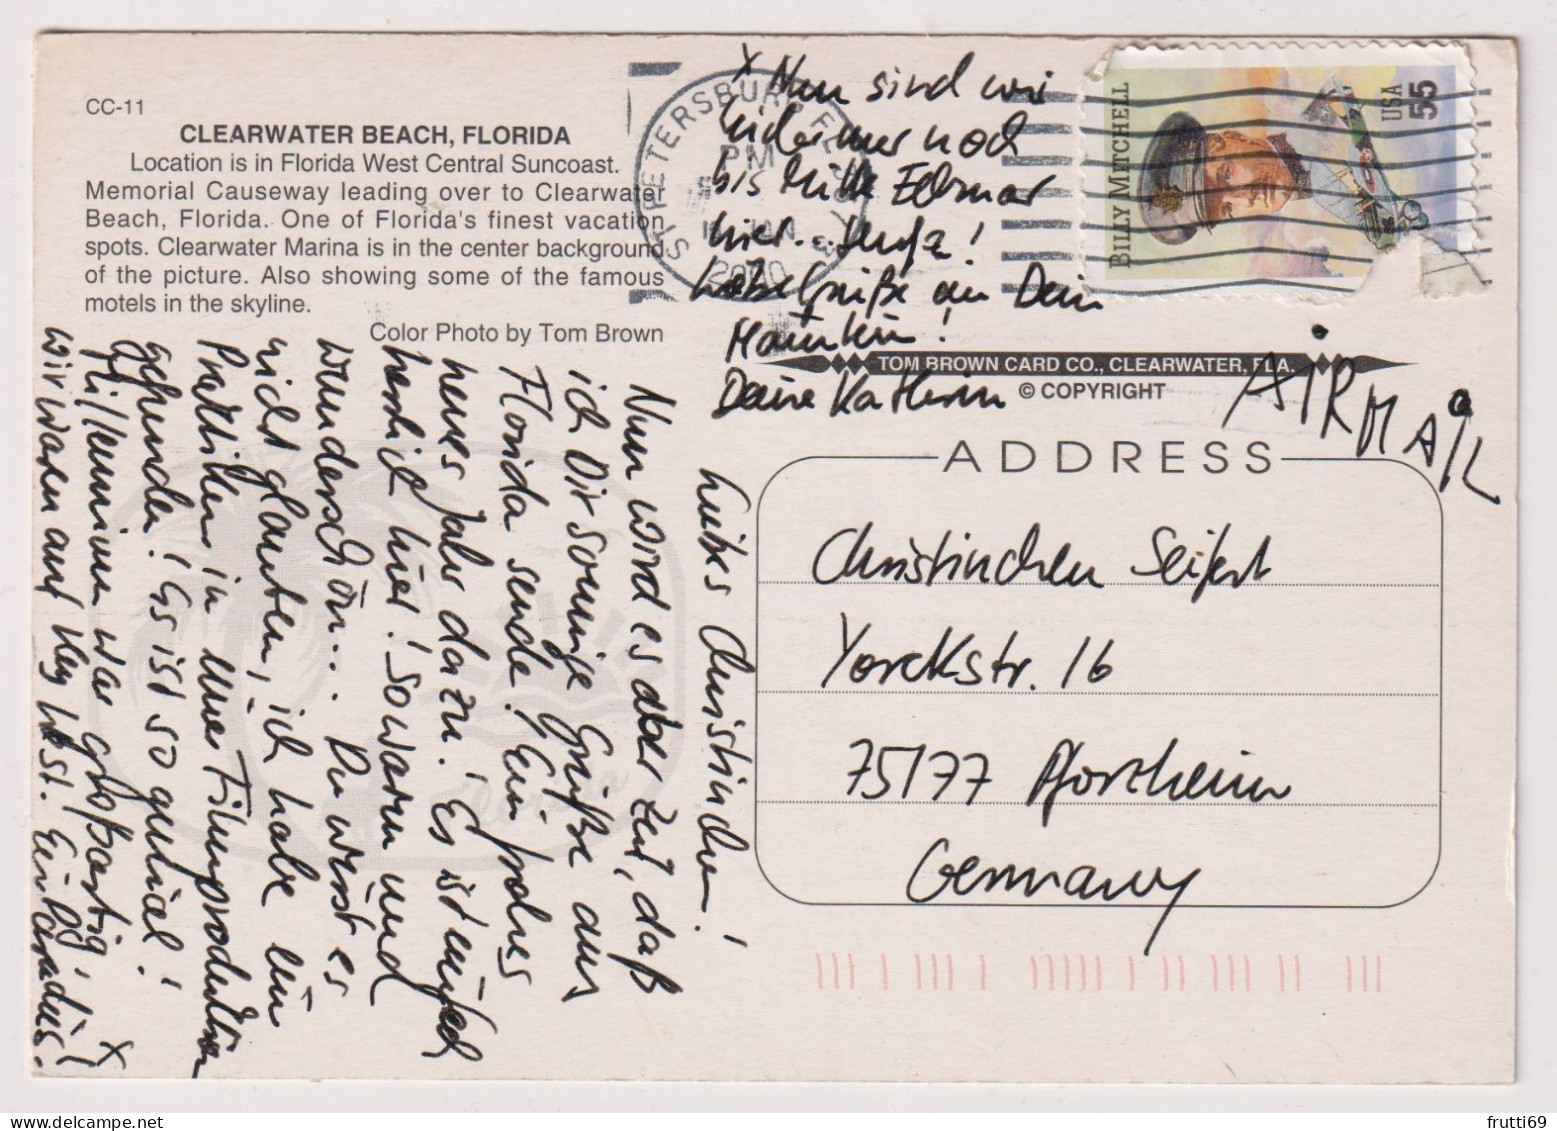 CC-11
CLEARWATER BEACH, FLORIDA
Location is in Florida West Central Suncoast.
Memorial Causeway leading over to Clearwater
Beach, Florida. One of Florida's finest vacation
spots. Clearwater Marina is in the center background
of the picture. Also showing some of the famous
motels in the skyline.
Color Photo by Tom Brown
Liebes Christinchen!
Nun wird es aber Zeit, daß
ich Dir sonnige Grüße aus
Florida sende! Ein frohes
neues Jahr dazu! Es ist einfach
herrlich hier! So warm und
wunderschön... Du wirst es
nicht glauben, ich habe ein
Praktikum in einer Filmproduktion
gefunden! Es ist so genial!
war großartig,
wir waren auf Key West! Einfach
x
x Nun sind wir
hier immer noch
bis Mitte Februar
hier.
Liebe Grüße an Dein
Deine Kathrin
ST PETERSBURG FL
PM
2000
BILLY MITCHELL
USA
55
TOM BROWN CARD CO., CLEARWATER, FLA.
© COPYRIGHT
AIRMAIL
ADDRESS
Christinchen Seifert
Yorckstr. 16
75177 Pforzheim
Germany
frutti69